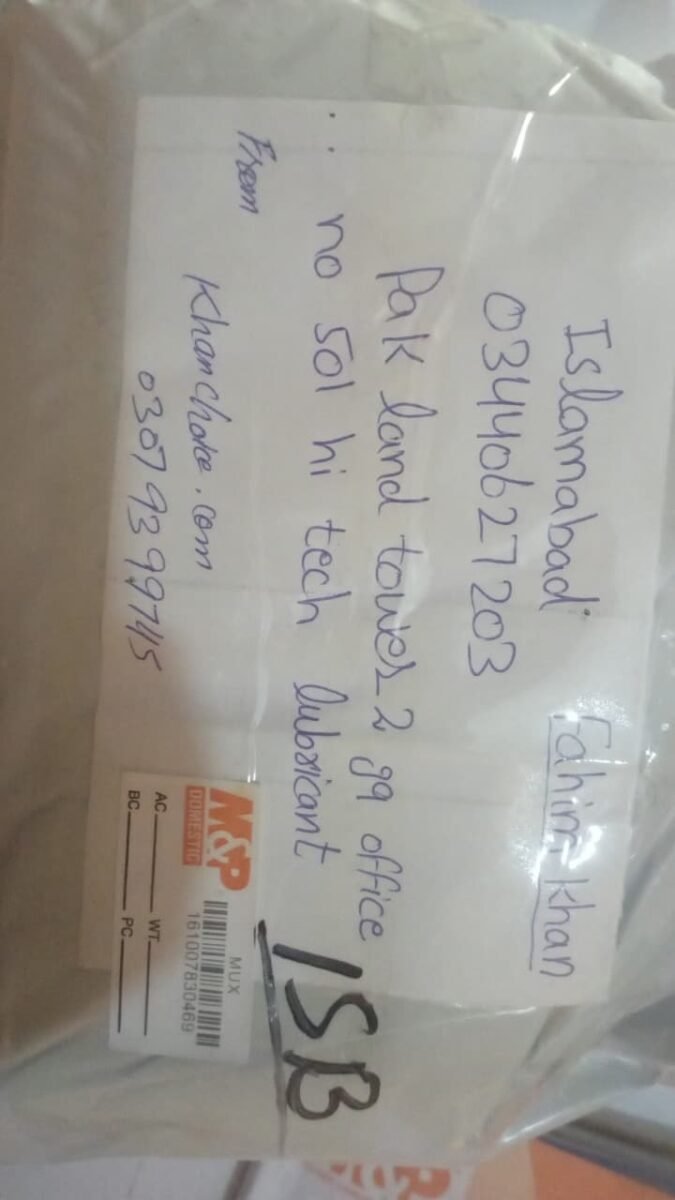 Islamabad Fahim Khan
03440627203
Pak land tower 2 g9 office
no 501 hi tech lubricant
From
Khanchoice.com
03079399745
M&P
DOMESTIC
MUX
161007830469
AC. WT.
BC. PC.
ISB